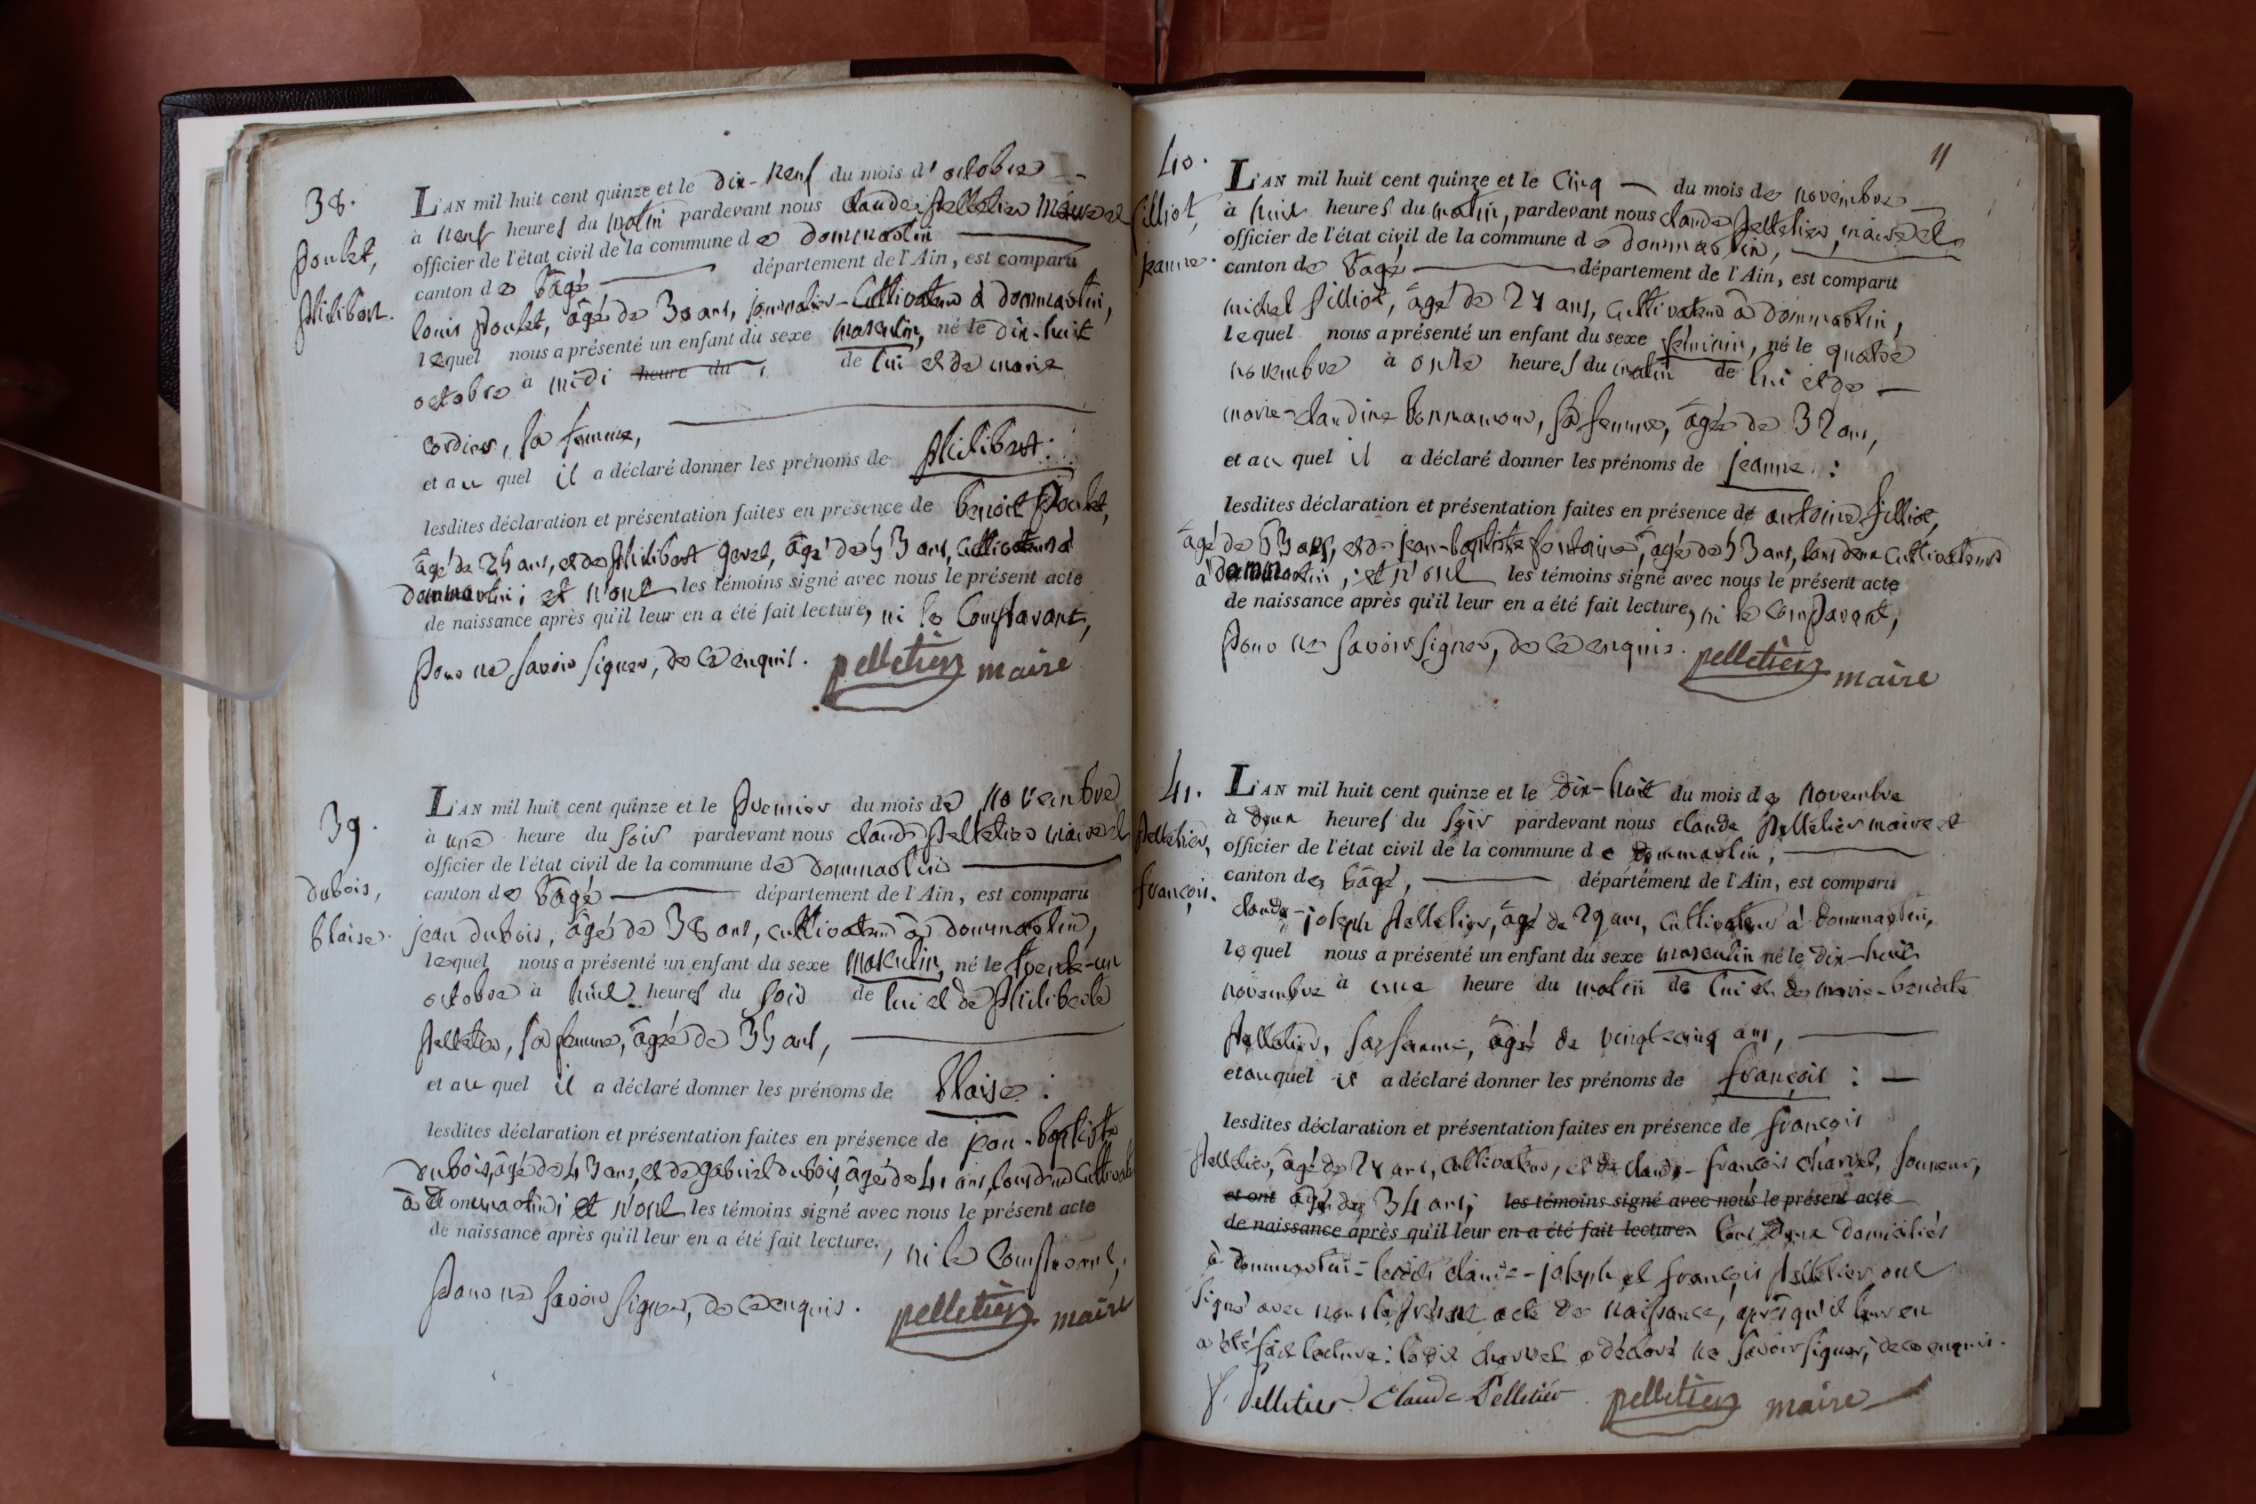 38.
Poulet,
Philibert.
L'AN mil huit cent quinze et le dix-neuf du mois d'octobre
à neuf heures du matin pardevant nous claude pelletier maire et
officier de l'état civil de la commune de dommartin
canton de bâgé département de l'Ain, est comparu
louis poulet, âgé de 30 ans, journalier-cultivateur à dommartin,
lequel nous a présenté un enfant du sexe masculin, né le dix-huit
octobre à midi heure du, de lui et de marie
cordier, sa femme,
et au quel il a déclaré donner les prénoms de philibert:
lesdites déclaration et présentation faites en présence de benoit poulet,
âgé de 24 ans, et de philibert gevel, âgé de 43 ans, cultivateurs à
dommartin; et n'ont les témoins signé avec nous le présent acte
de naissance après qu'il leur en a été fait lecture, ni le comparant,
pour ne savoir signer, de ce enquis. pelletier maire
39.
dubois,
blaise.
L'AN mil huit cent quinze et le premier du mois de novembre
à une heure du soir pardevant nous claude pelletier maire et
officier de l'état civil de la commune de dommartin
canton de bâgé département de l'Ain, est comparu
jean dubois, âgé de 38 ans, cultivateur à dommartin,
lequel nous a présenté un enfant du sexe masculin, né le trente-un
octobre à huit heures du soir de lui et de philiberte
pelletier, sa femme, âgée de 34 ans,
et au quel il a déclaré donner les prénoms de blaise:
lesdites déclaration et présentation faites en présence de jean-baptiste
dubois, âgé de 43 ans, et de gabriel dubois, âgé de 41 ans, tous deux
à dommartin; et n'ont les témoins signé avec nous le présent acte
de naissance après qu'il leur en a été fait lecture, ni le comparant,
pour ne savoir signer, de ce enquis. pelletier maire
11
40.
filliot,
jeanne.
L'AN mil huit cent quinze et le cinq du mois de novembre
à huit heures du matin, pardevant nous claude pelletier, maire et
officier de l'état civil de la commune de dommartin,
canton de bâgé département de l'Ain, est comparu
michel filliot, âgé de 27 ans, cultivateur à dommartin,
lequel nous a présenté un enfant du sexe féminin, né le quatre
novembre à onze heures du matin de lui et de
marie-claudine bonnamour, sa femme, âgée de 32 ans,
et au quel il a déclaré donner les prénoms de jeanne:
lesdites déclaration et présentation faites en présence de antoine filliot,
âgé de 63 ans, et de jean-baptiste fontaine, âgé de 53 ans, tous deux cultivateurs
à dommartin,; et n'ont les témoins signé avec nous le présent acte
de naissance après qu'il leur en a été fait lecture, ni le comparant,
pour ne savoir signer, de ce enquis. pelletier maire
41.
pelletier,
françois.
L'AN mil huit cent quinze et le dix-huit du mois de novembre
à deux heures du soir pardevant nous claude pelletier maire et
officier de l'état civil de la commune de dommartin,
canton de bâgé, département de l'Ain, est comparu
claude-joseph pelletier, âgé de 29 ans, cultivateur à dommartin,
lequel nous a présenté un enfant du sexe masculin né le dix-huit
novembre à une heure du matin de lui et de marie-benoite
pelletier, sa femme, âgée de vingt-cinq ans,
et au quel il a déclaré donner les prénoms de françois:
lesdites déclaration et présentation faites en présence de françois
pelletier, âgé de 27 ans, cultivateur, et de claude-françois charvet, sonneur,
et ont âgé de 34 ans; les témoins signé avec nous le présent acte
de naissance après qu'il leur en a été fait lecture. tous deux domiciliés
à dommartin = lesdits claude-joseph et françois pelletier ont
signé avec nous le présent acte de naissance, après qu'il leur en
a été fait lecture: ledit charvet a déclaré ne savoir signer, de ce enquis.
f. Pelletier Claude Pelletier pelletier maire